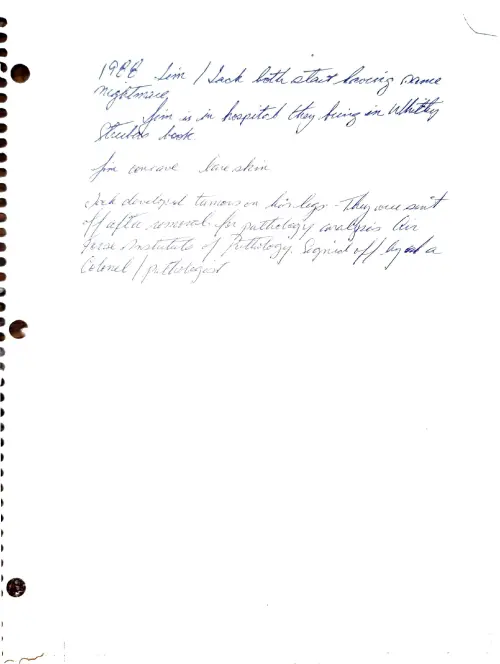 1988 Jim / Jack both start having same
nightmare
Jim is in hospital they bring in Whitley
Striebers book
Jim concave bare skin
Jack developed tumors on his legs - They were sent
off after removal for pathology analysis Air
Force Institute of Pathology. Signed off by a
Colonel / pathologist